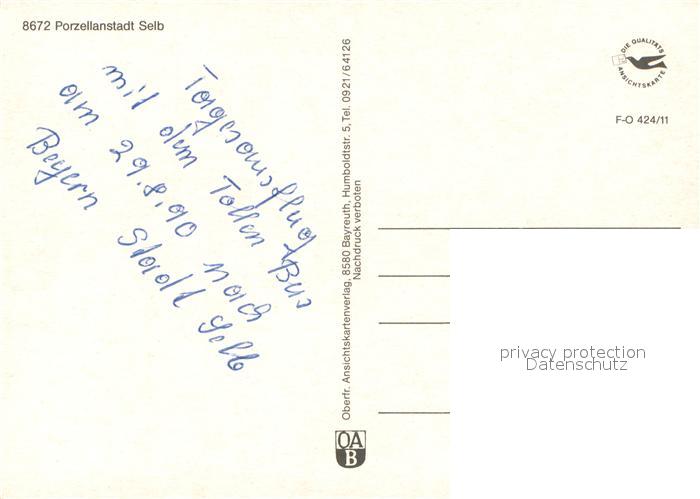 8672 Porzellanstadt Selb
Tagesausflug
mit dem Tollen Bus
am 29.8.90 nach
Bayern Stadt Selb
Oberfr. Ansichtskartenverlag, 8580 Bayreuth, Humboldtstr. 5, Tel. 0921/64126
Nachdruck verboten
DIE QUALITÄTS
ANSICHTSKARTE
F-O 424/11
privacy protection
Datenschutz
OA
B